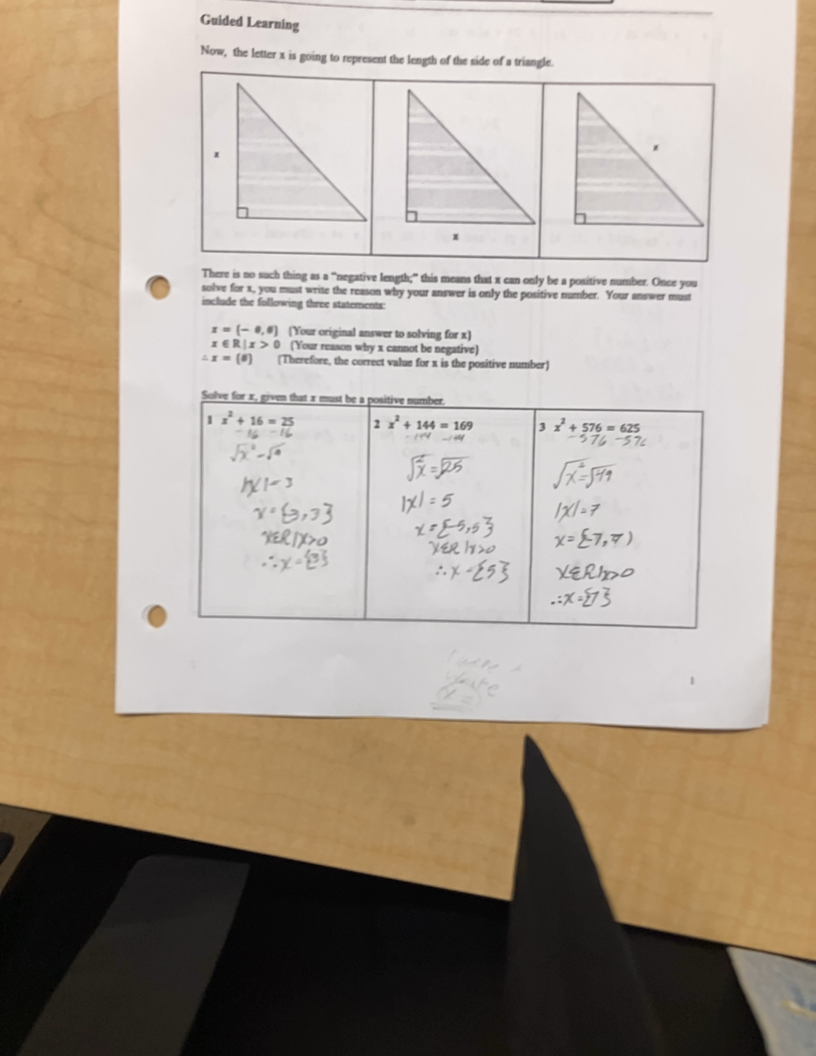 Guided Learning
Now, the letter x is going to represent the length of the side of a triangle.
x
x
x
There is no such thing as a "negative length;" this means that x can only be a positive number. Once you
solve for x, you must write the reason why your answer is only the positive number. Your answer must
include the following three statements:
x = {− #, #} (Your original answer to solving for x)
x ∈ ℝ | x > 0 (Your reason why x cannot be negative)
∴ x = {#} (Therefore, the correct value for x is the positive number)
Solve for x, given that x must be a positive number.
1 x² + 16 = 25
-16 -16
√x² = √9
|x| = 3
x = {-3, 3}
x∈R|x>0
∴x = {3}
2 x² + 144 = 169
-144 -144
√x² = √25
|x| = 5
x = {-5, 5}
x∈R|x>0
∴x = {5}
3 x² + 576 = 625
-576 -576
√x² = √49
|x| = 7
x = {-7, 7)
x∈R|x>0
∴x = {7}
x =
1